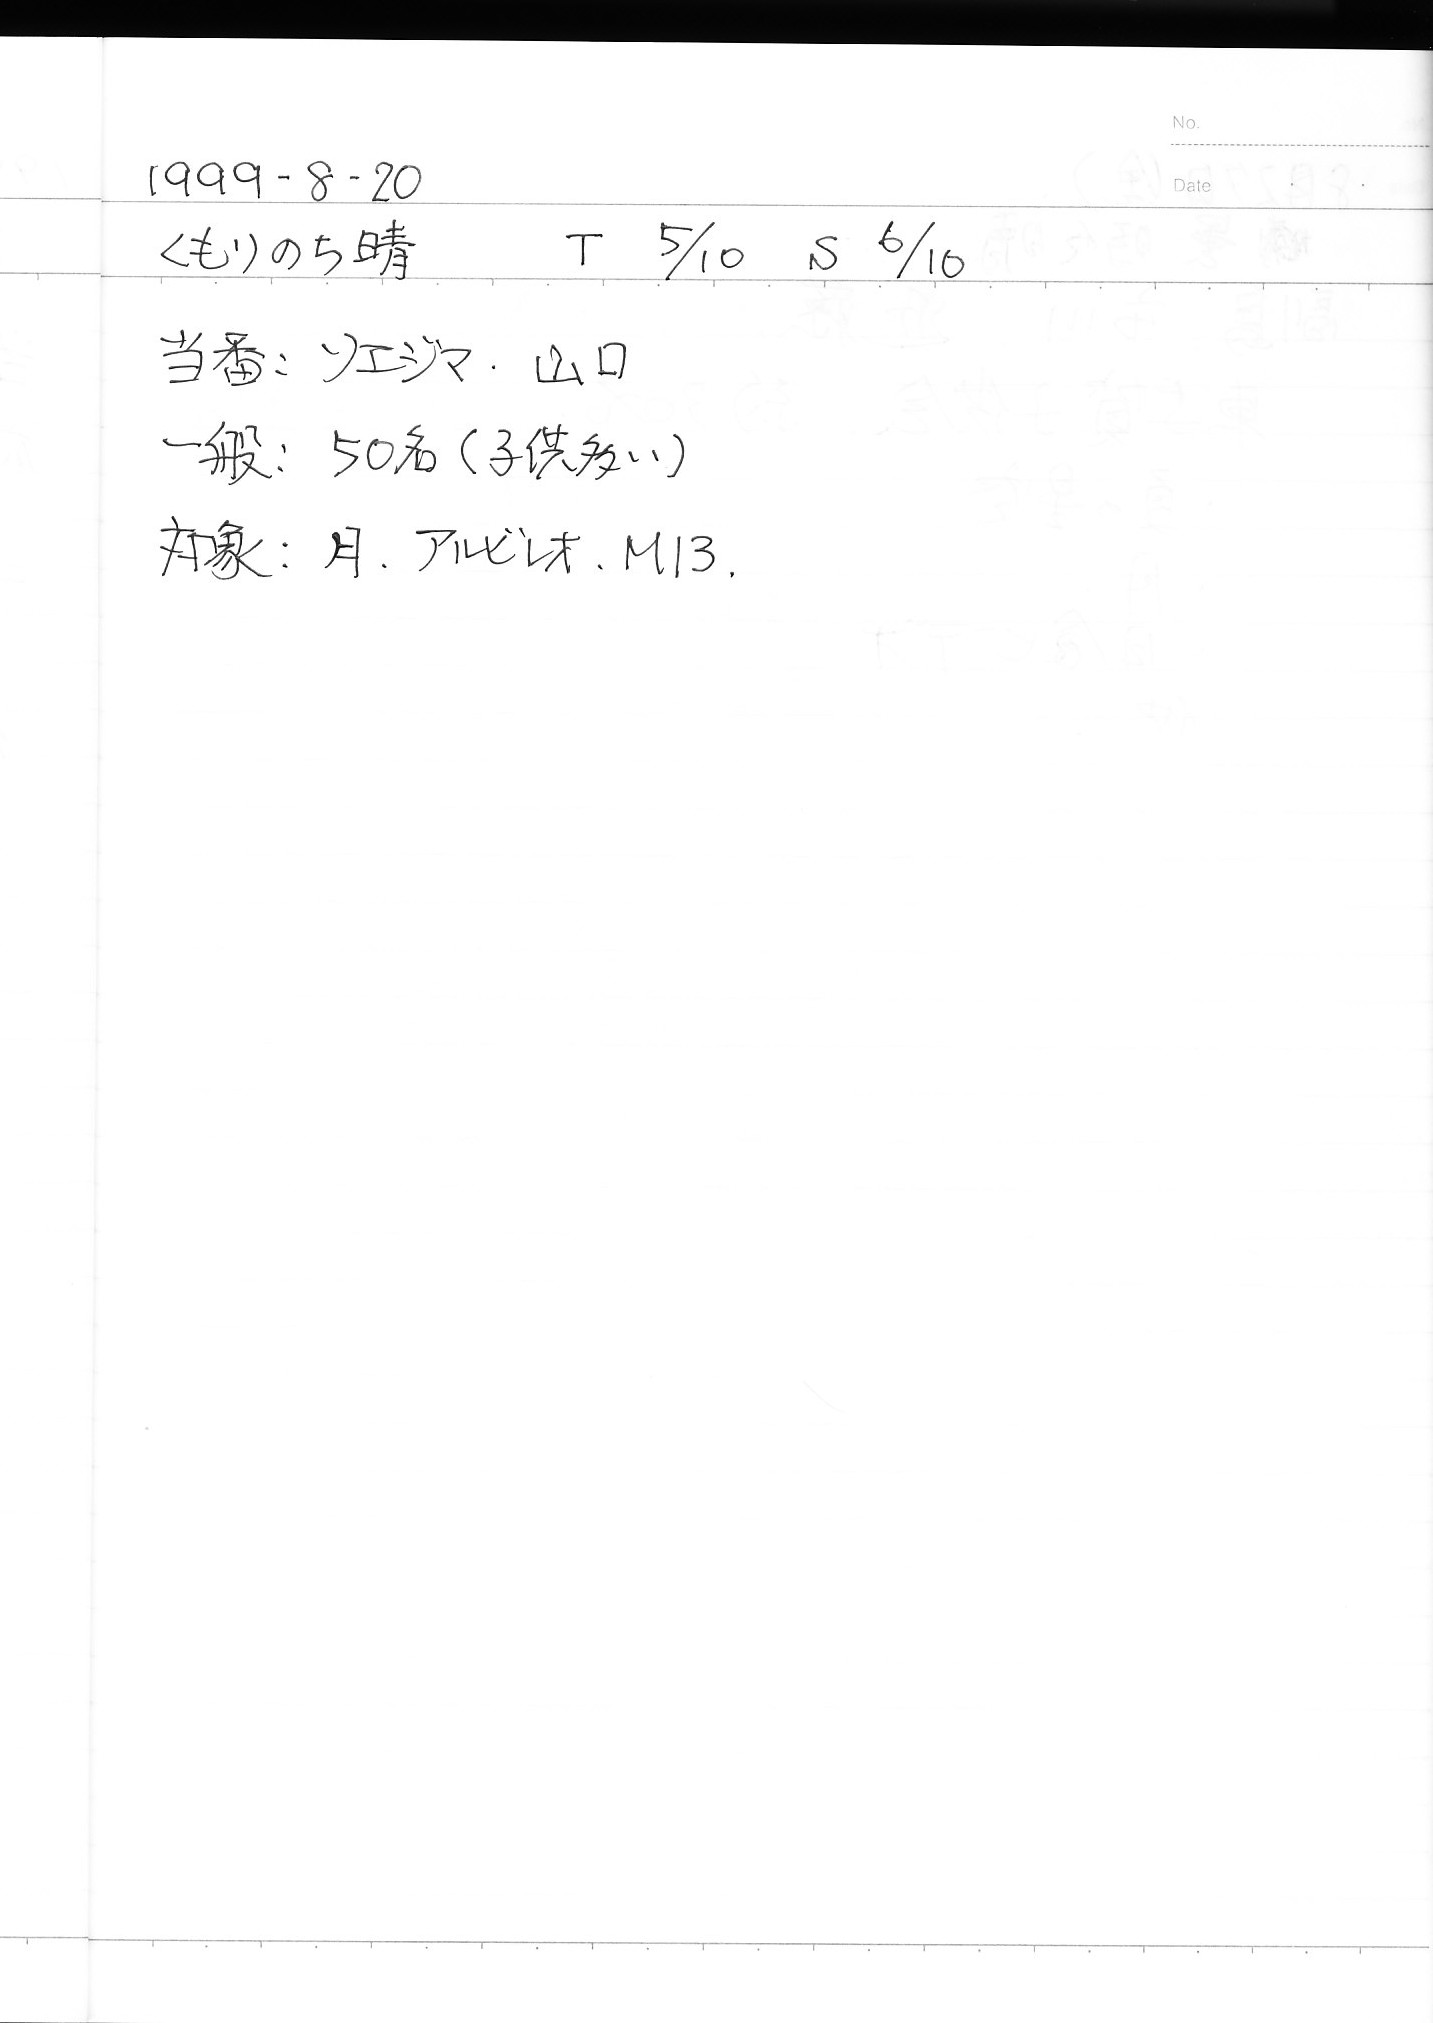 No.
1999-8-20
Date
くもりのち晴 T 5/10 S 6/10
当番: ソエジマ. 山口
一般: 50名(子供多い)
対象: 月. アルビレオ. M13.